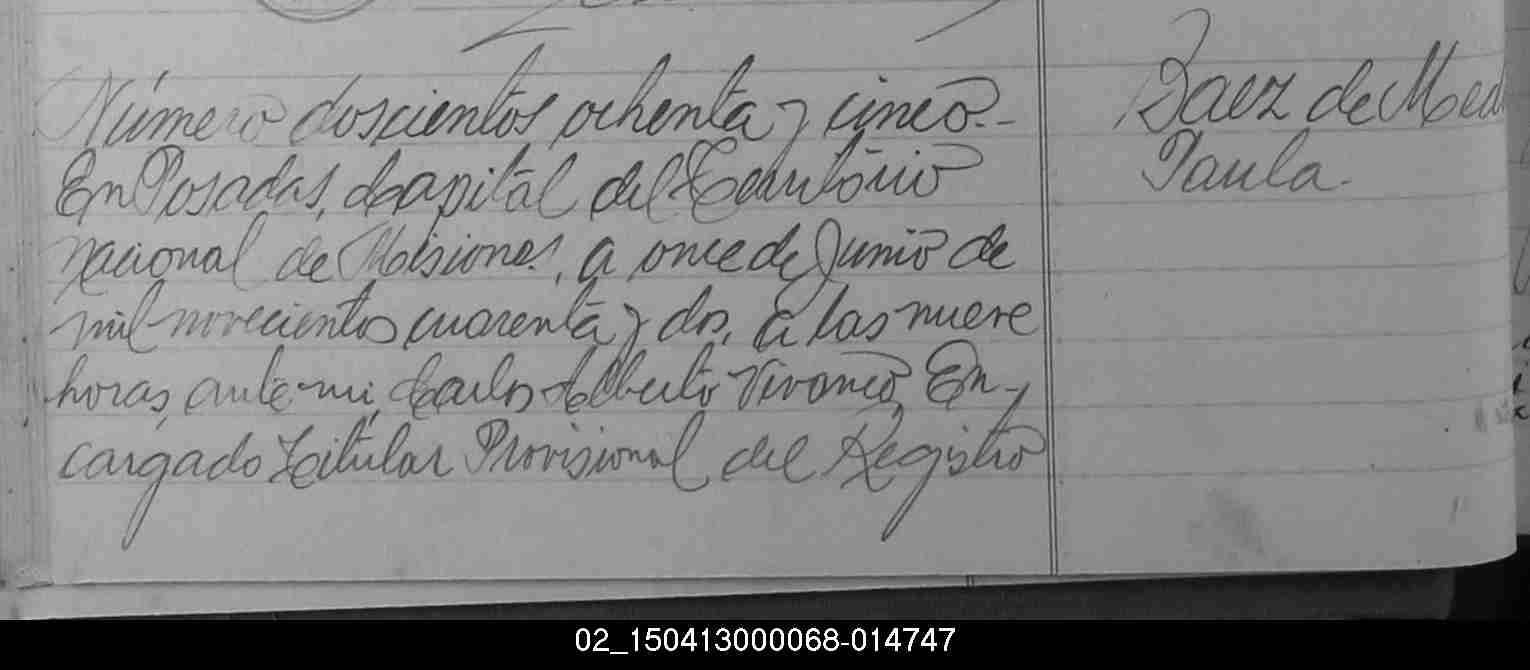 Número doscientos ochenta y cinco.-
En Posadas, Capital del Territorio
nacional de Misiones, a once de Junio de
mil novecientos cuarenta y dos, a las nueve
horas, ante mi, Carlos Alberto Vivanco, En-
cargado Titular Provisional del Registro
Baez de Med
Paula.
02_150413000068-014747